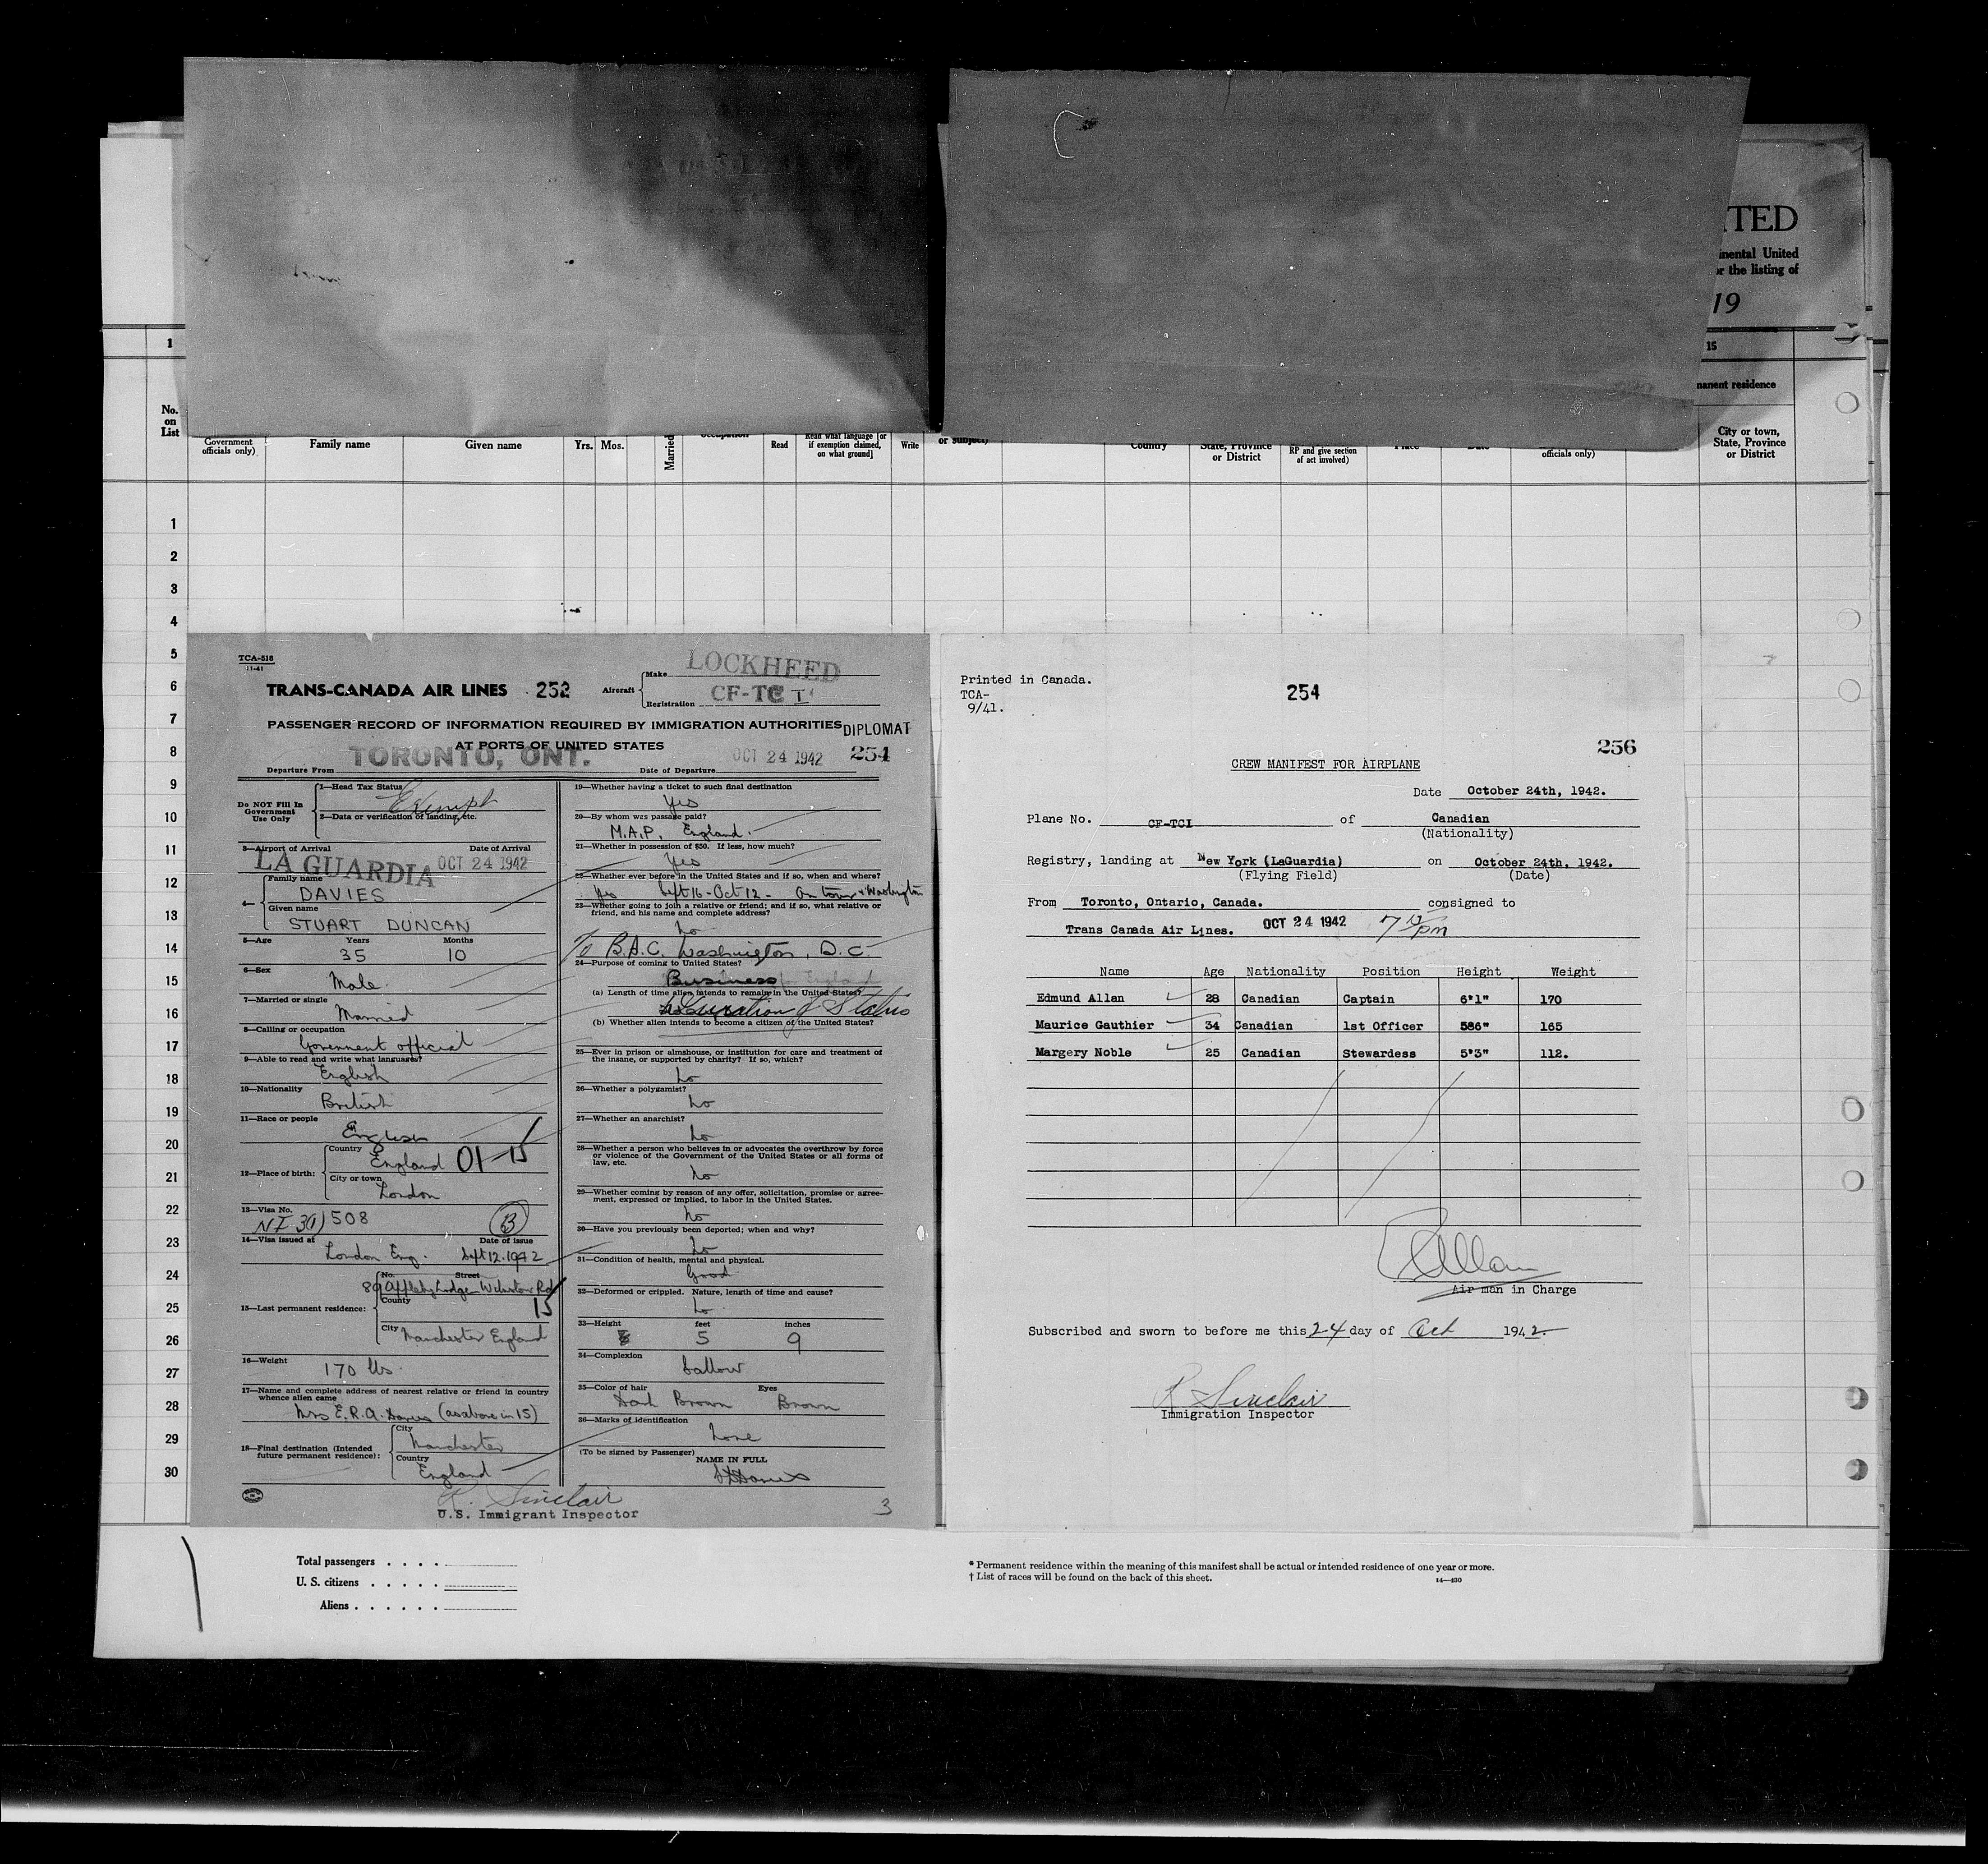 ITED
inental United
or the listing of
19
1
15
manent residence
No.
on
List
Government
officials only)
Family name
Given name
Yrs. Mos.
Married
occupation
Read
Read what language [or
if exemption claimed,
on what ground]
Write
or subject)
Country
State, Province
or District
RP and give section
of act involved)
Place
Date
officials only)
City or town,
State, Province
or District
1
2
3
4
5
6
7
8
9
10
11
12
13
14
15
16
17
18
19
20
21
22
23
24
25
26
27
28
29
30
TCA-518
11-41
TRANS-CANADA AIR LINES 252
Aircraft
Make LOCKHEED
Registration CF-TCI
PASSENGER RECORD OF INFORMATION REQUIRED BY IMMIGRATION AUTHORITIES DIPLOMAT
AT PORTS OF UNITED STATES
254
Departure From TORONTO, ONT. Date of Departure OCT 24 1942
Do NOT Fill In
Government
Use Only
1—Head Tax Status
Exempt
2—Data or verification of landing, etc.
3—Airport of Arrival Date of Arrival
LA GUARDIA OCT 24 1942
4—
Family name
DAVIES
Given name
STUART DUNCAN
5—Age Years Months
35 10
6—Sex
Male
7—Married or single
Married
8—Calling or occupation
Government official
9—Able to read and write what languages?
English
10—Nationality
British
11—Race or people
English
12—Place of birth:
Country
England 01-15
City or town
London
13—Visa No.
NI 3(1) 508 (B)
14—Visa issued at Date of issue
London Eng. Sept 12. 1942
15—Last permanent residence:
No. Street
89 Appleby Lodge Wilmslow Rd
County
15
City
Manchester England
16—Weight
170 lbs.
17—Name and complete address of nearest relative or friend in country
whence alien came
Mrs E.R.A. Davies (as above in 15)
18—Final destination (Intended
future permanent residence):
City
Manchester
Country
England
R. Sinclair
U.S. Immigrant Inspector
19—Whether having a ticket to such final destination
Yes
20—By whom was passage paid?
M.A.P. England.
21—Whether in possession of $50. If less, how much?
Yes
22—Whether ever before in the United States and if so, when and where?
Yes Sept 16 - Oct 12 - On tour & Washington
23—Whether going to join a relative or friend; and if so, what relative or
friend, and his name and complete address?
No
To B.A.C. Washington, D.C.
24—Purpose of coming to United States?
Business
(a) Length of time alien intends to remain in the United States?
Duration of Status
(b) Whether alien intends to become a citizen of the United States?
25—Ever in prison or almshouse, or institution for care and treatment of
the insane, or supported by charity? If so, which?
No
26—Whether a polygamist?
No
27—Whether an anarchist?
No
28—Whether a person who believes in or advocates the overthrow by force
or violence of the Government of the United States or all forms of
law, etc.
No
29—Whether coming by reason of any offer, solicitation, promise or agree-
ment, expressed or implied, to labor in the United States.
No
30—Have you previously been deported; when and why?
No
31—Condition of health, mental and physical.
Good
32—Deformed or crippled. Nature, length of time and cause?
No
33—Height feet inches
5 9
34—Complexion
Sallow
35—Color of hair Eyes
Dark Brown Brown
36—Marks of identification
None
(To be signed by Passenger)
NAME IN FULL
SDDavies
3
Printed in Canada.
TCA-
9/41.
254
256
CREW MANIFEST FOR AIRPLANE
Date October 24th, 1942.
Plane No. CF-TCI of Canadian
(Nationality)
Registry, landing at New York (LaGuardia) on October 24th, 1942.
(Flying Field) (Date)
From Toronto, Ontario, Canada. consigned to
Trans Canada Air Lines. OCT 24 1942 7 12/pm
Name Age Nationality Position Height Weight
Edmund Allan 28 Canadian Captain 6'1" 170
Maurice Gauthier 34 Canadian 1st Officer 586" 165
Margery Noble 25 Canadian Stewardess 5'3" 112.
EAllan
Air man in Charge
Subscribed and sworn to before me this 24 day of Oct 1942.
R Sinclair
Immigration Inspector
Total passengers . . . .
U. S. citizens . . . . .
Aliens . . . . . .
* Permanent residence within the meaning of this manifest shall be actual or intended residence of one year or more.
† List of races will be found on the back of this sheet.
14—430